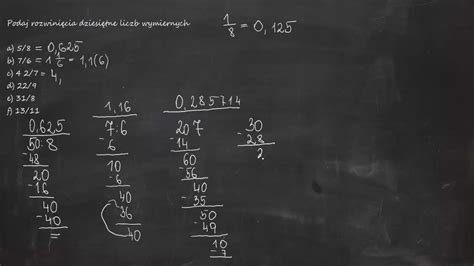 Podaj rozwinięcia dziesiętne liczb wymiernych
1/8 = 0,125
a) 5/8 = 0,625
b) 7/6 = 1 1/6 = 1,1(6)
c) 4 2/7 = 4,
d) 22/9
e) 31/8
f) 13/11
0,625
50:8
-48
20
-16
40
-40
=
1,16
7:6
-6
10
-6
40
36
40
0,285714
20 7
-14
60
-56
40
-35
50
-49
10
-7
30
-28
2